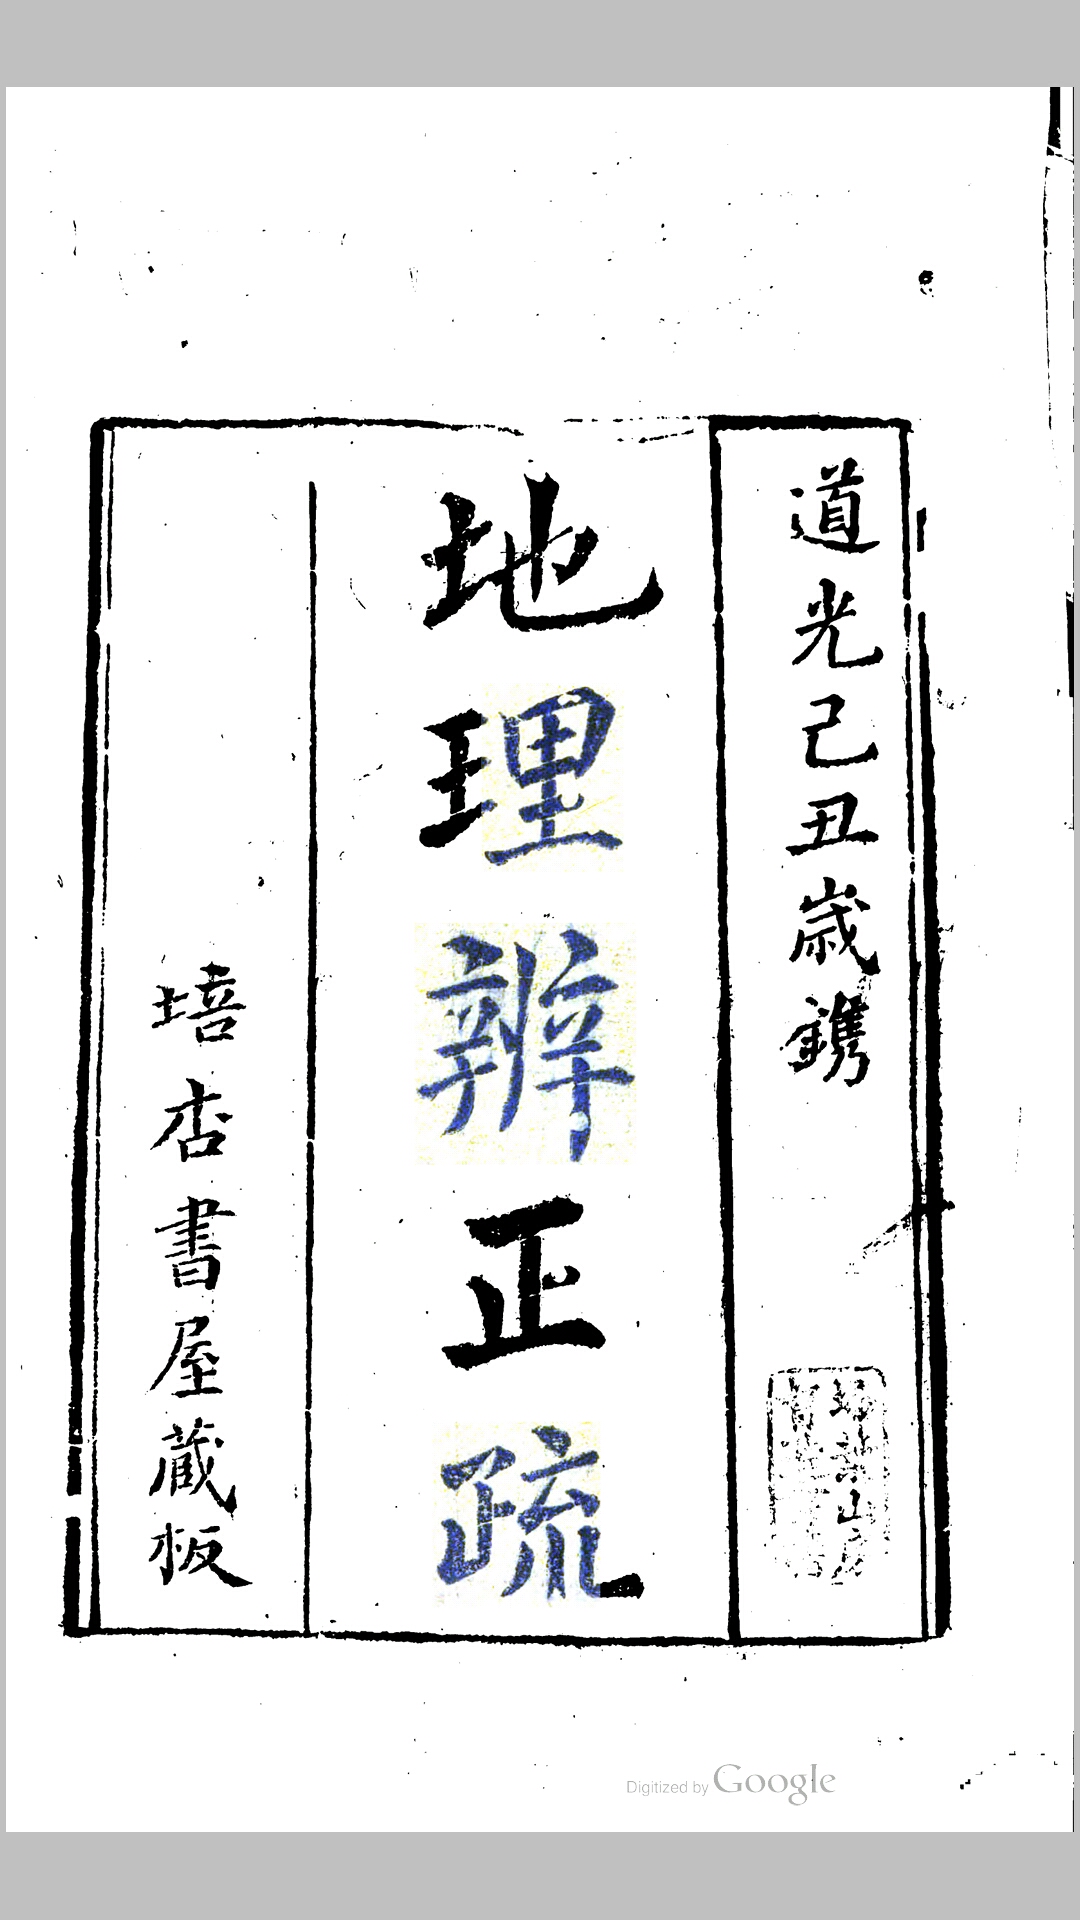 道光己丑歲鐫
地理辨正疏
培杏書屋藏板
Digitized by Google